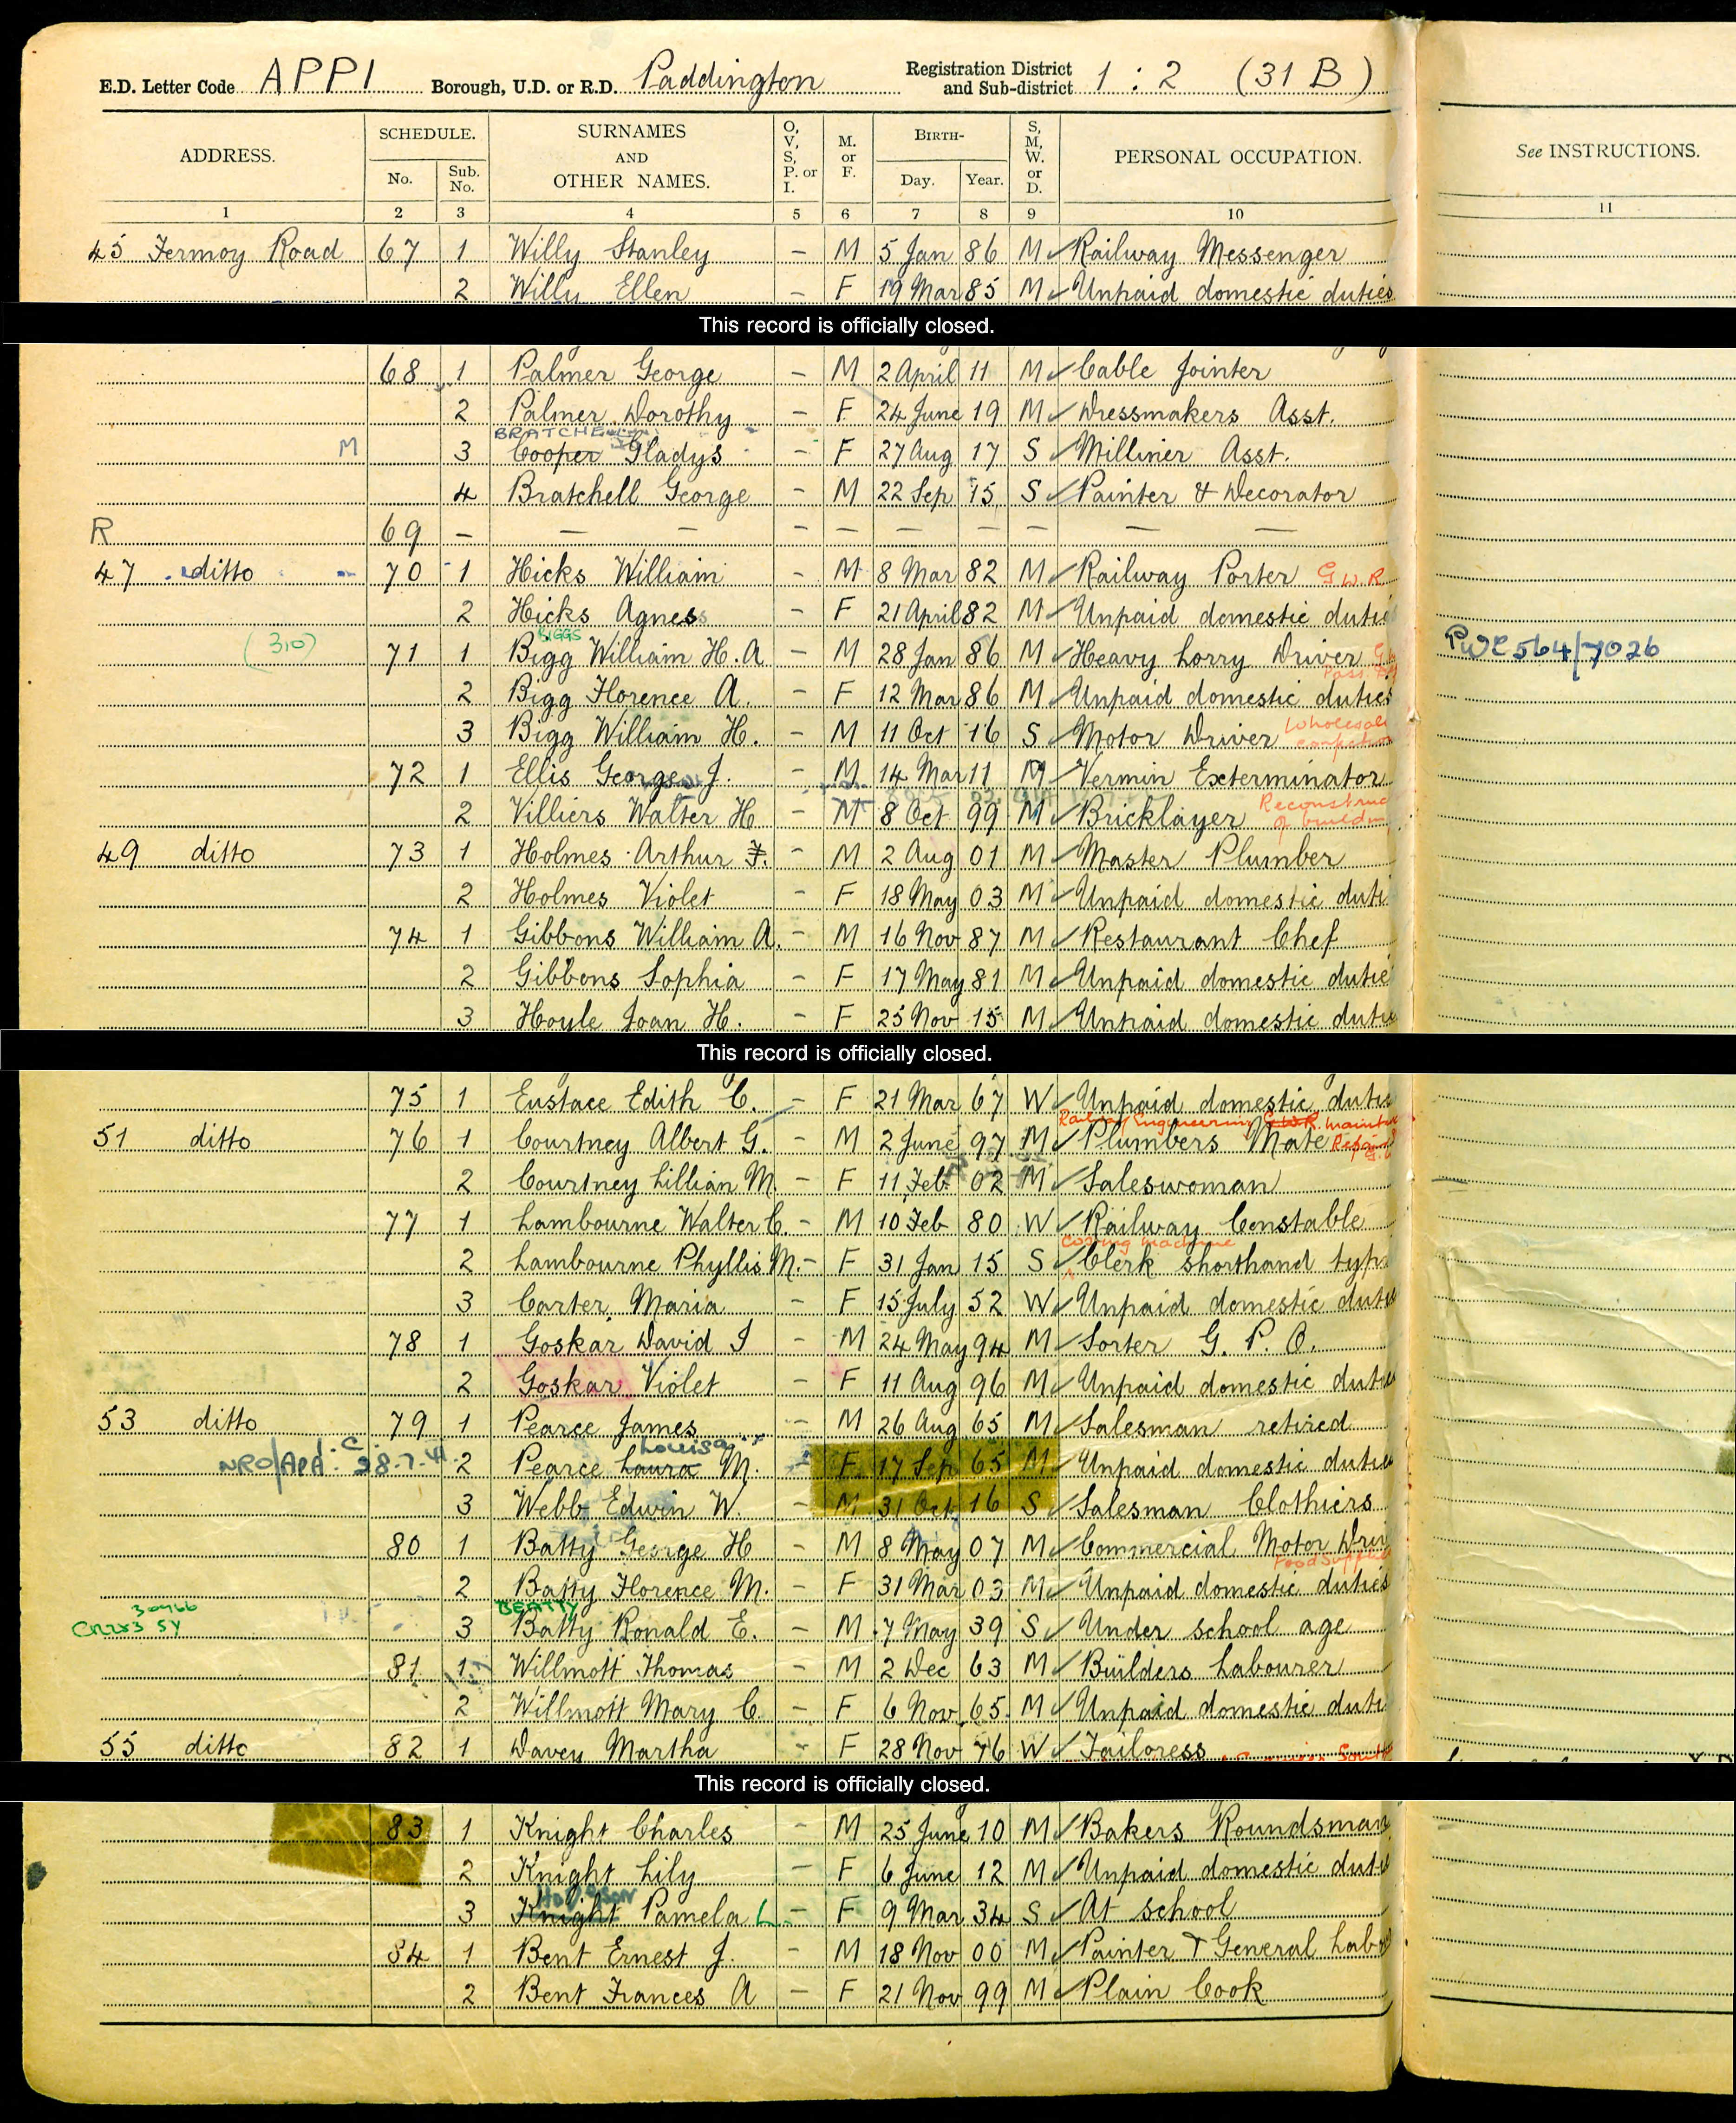 E.D. Letter Code APPI Borough, U.D. or R.D. Paddington Registration District and Sub-district 1 : 2 (31 B)
ADDRESS. SCHEDULE. No. Sub. No. SURNAMES AND OTHER NAMES. O, V, S, P. or I. M. or F. BIRTH- Day. Year. S, M, W. or D. PERSONAL OCCUPATION. See INSTRUCTIONS.
1 2 3 4 5 6 7 8 9 10 11
45 Fermoy Road 67 1 Willy Stanley – M 5 Jan 86 M Railway Messenger
2 Willy Ellen – F 19 Mar 85 M Unpaid domestic duties
This record is officially closed.
68 1 Palmer George – M 2 April 11 M Cable Jointer
2 Palmer Dorothy – F 24 June 19 M Dressmakers Asst.
M 3 Cooper Gladys – F 27 Aug 17 S Milliner Asst.
4 Bratchell George – M 22 Sep 15 S Painter & Decorator
R 69 – — — – – — – – — —
47 ditto 70 1 Hicks William – M 8 Mar 82 M Railway Porter G W R
2 Hicks Agness – F 21 April 82 M Unpaid domestic duties
BIGGS
(310) 71 1 Bigg William H. A – M 28 Jan 86 M Heavy Lorry Driver
2 Bigg Florence A. – F 12 Mar 86 M Unpaid domestic duties
3 Bigg William H. – M 11 Oct 16 S Motor Driver
72 1 Ellis George J. – M 14 Mar 11 M Vermin Exterminator
2 Villiers Walter H – M 8 Oct 99 M Bricklayer
49 ditto 73 1 Holmes Arthur F. – M 2 Aug 01 M Master Plumber
2 Holmes Violet – F 18 May 03 M Unpaid domestic duti
74 1 Gibbons William A. – M 16 Nov 87 M Restaurant Chef
2 Gibbons Sophia – F 17 May 81 M Unpaid domestic dutie
3 Hoyle Joan H. – F 25 Nov 15 M Unpaid domestic dutie
This record is officially closed.
75 1 Eustace Edith C. – F 21 Mar 67 W Unpaid domestic dutie
51 ditto 76 1 Courtney Albert G. – M 2 June 97 M Plumbers Mate
2 Courtney Lillian M. – F 11 Feb 02 M Saleswoman
77 1 Lambourne Walter C. – M 10 Feb 80 W Railway Constable
2 Lambourne Phyllis M. – F 31 Jan 15 S Clerk shorthand typi
3 Carter Maria – F 15 July 52 W Unpaid domestic dutie
78 1 Goskar David I – M 24 May 94 M Sorter G. P. O.
2 Goskar Violet – F 11 Aug 96 M Unpaid domestic dutie
53 ditto 79 1 Pearce James – M 26 Aug 65 M Salesman retired
Louisa
2 Pearce Laura M. F 17 Sep 65 M Unpaid domestic dutie
3 Webb Edwin W. – M 31 Oct 16 S Salesman Clothiers
80 1 Batty George H – M 8 May 07 M Commercial Motor Driv
2 Batty Florence M. – F 31 Mar 03 M Unpaid domestic duties
BEATTY
3 Batty Ronald E. – M 7 May 39 S Under school age
81 1 Willmott Thomas – M 2 Dec 63 M Builders Labourer
2 Willmott Mary C. – F 6 Nov 65 M Unpaid domestic duti
55 ditto 82 1 Davey Martha – F 28 Nov 76 W Tailoress
This record is officially closed.
83 1 Knight Charles – M 25 June 10 M Bakers Roundsman
2 Knight Lily – F 6 June 12 M Unpaid domestic dutie
3 Knight Pamela L – F 9 Mar 34 S At school
84 1 Bent Ernest J. – M 18 Nov 00 M Painter & General Labo
2 Bent Frances A – F 21 Nov 99 M Plain Cook